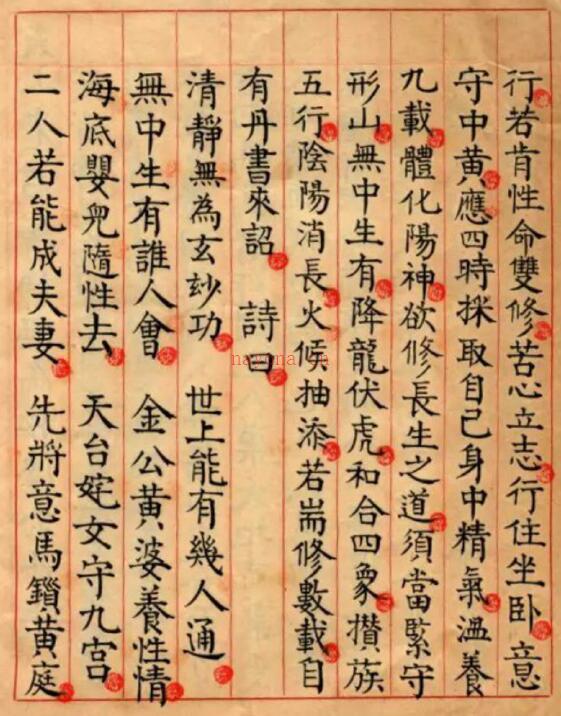 行若肯性命雙修苦心立志行住坐卧意
守中黄應四時採取自己身中精氣溫養
九載體化陽神欲修長生之道須當緊守
形山無中生有降龍伏虎和合四象攅族
五行陰陽消長火候抽添若耑修數載自
有丹書來詔 詩曰
清靜無為玄玅功 世上能有幾人通
無中生有誰人會 金公黄婆養性情
海底嬰兒隨性去 天台姹女守九宫
二人若能成夫妻 先將意馬鎖黄庭